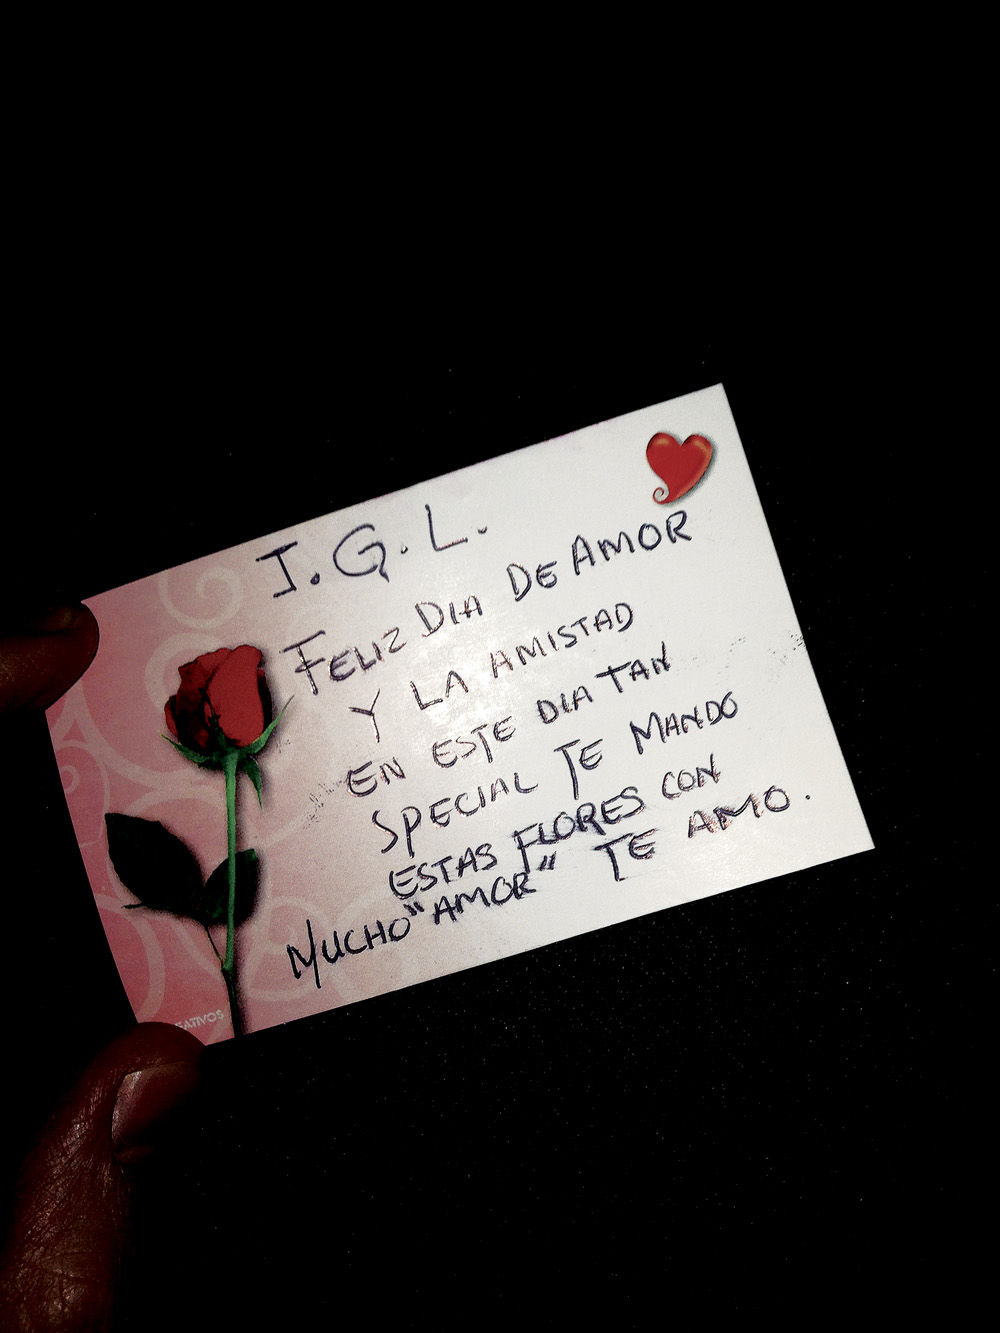 I.G.L.
FELIZ DIA DE AMOR
Y LA AMISTAD
EN ESTE DIA TAN
SPECIAL TE MANDO
ESTAS FLORES CON
MUCHO "AMOR" TE AMO.